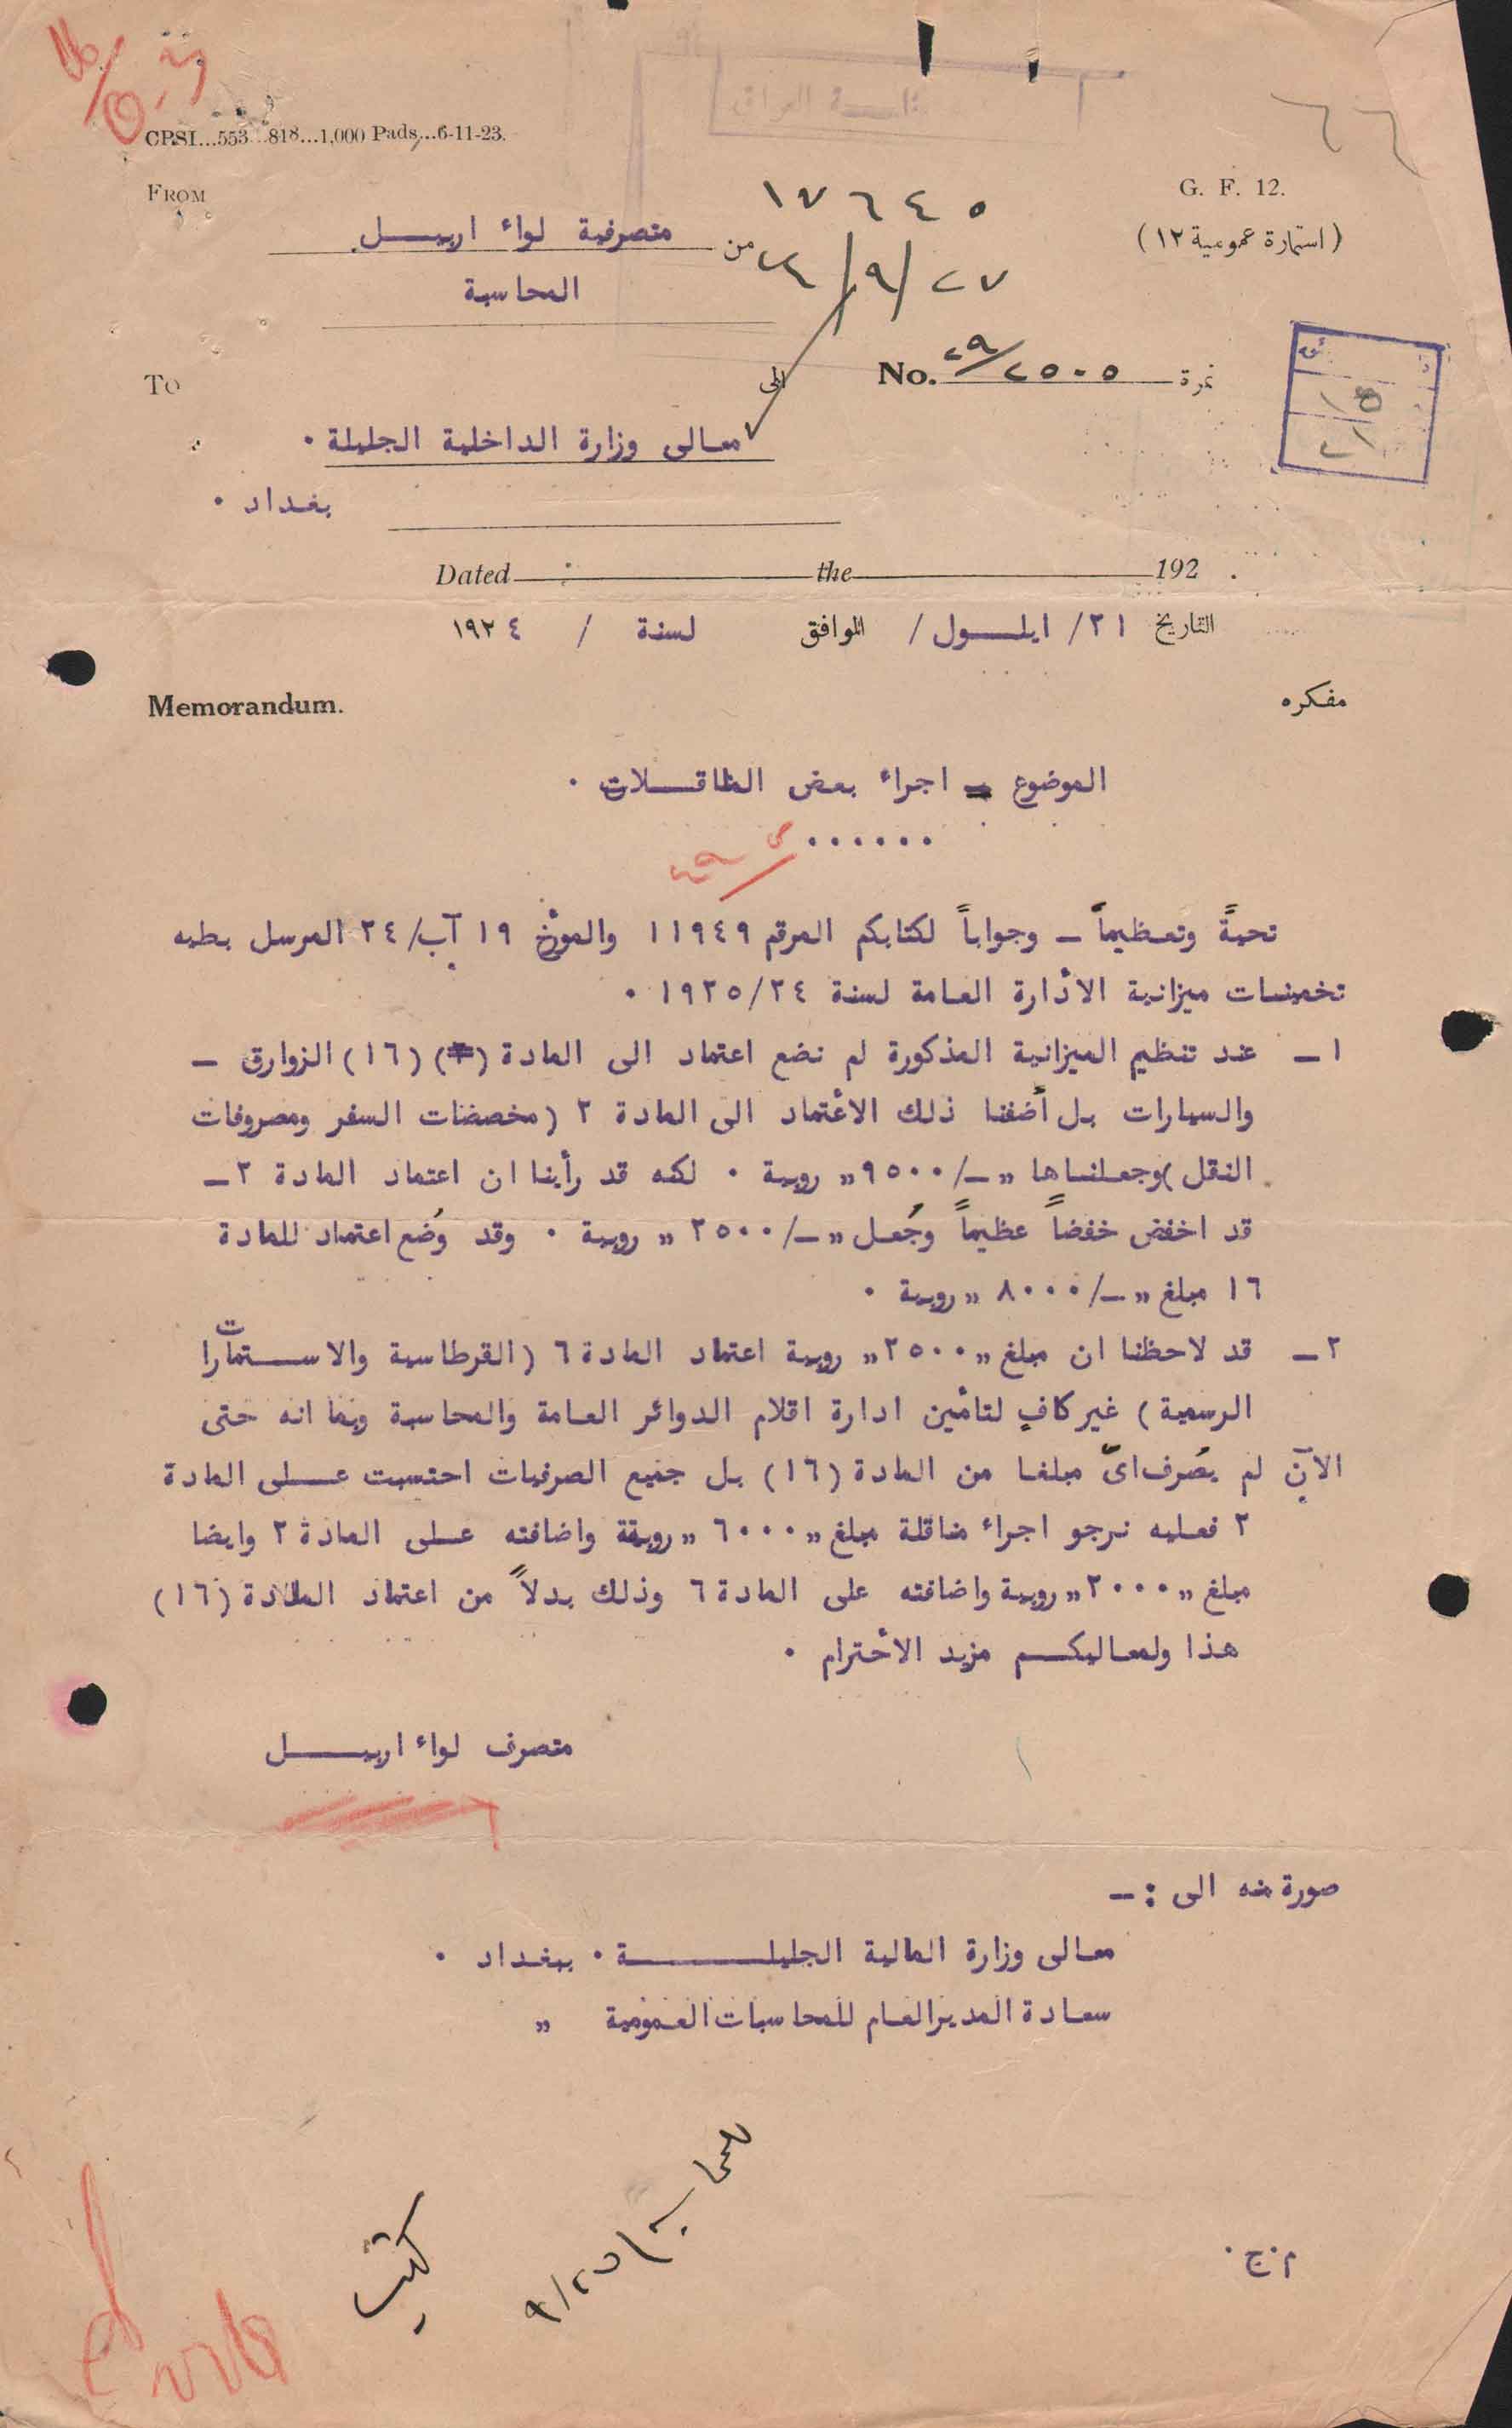 CPSI...553...818...1,000 Pads,...6-11-23.
G. F. 12.
(استمارة عمومية ١٢)
١٧٦٤٥
FROM
من متصرفية لواء اربيـــل
٢٤/٩/٢٧
المحاسبة
نمرة No. ٢٩/٢٥٠٥
To
الى
معالى وزارة الداخلية الجليلة ٠
بغداد ٠
Dated the 192
التاريخ ٢١/ ايلـــول / الموافق / لسنة ١٩٢٤
Memorandum.
مفكره
الموضوع ـ اجراء بعض المناقـلات ٠
٠٠٠٠٠٠
تحيةً وتعظيماً ـ وجواباً لكتابكم المرقم ١١٩٤٩ والمؤرخ ١٩ آب/٢٤ المرسل بطيه
تخصيصات ميزانية الأدارة العامة لسنة ١٩٢٥/٢٤ ٠
١ ـ عند تنظيم الميزانية المذكورة لم نضع اعتماد الى المادة (١٦) الزوارق ـ
والسيارات بل أضفنا ذلك الأعتماد الى المادة ٢ (مخصصات السفر ومصروفات
النقل) وجعلناها „ ـ/٩٥٠٠ „ روبية ٠ لكنه قد رأينا ان اعتماد المادة ٢ ـ
قد اخفض خفضاً عظيماً وجُعل „ ـ/٢٥٠٠ „ روبية ٠ وقد وُضع اعتماد للمادة
١٦ مبلغ „ ـ/٨٠٠٠ „ روبية ٠
٢ ـ قد لاحظنا ان مبلغ „ ٢٥٠٠ „ روبية اعتماد المادة ٦ (القرطاسية والاســتمارات
الرسمية) غير كافٍ لتأمين ادارة اقلام الدوائر العامة والمحاسبة وبما انه حتى
الآن لم يُصرف اىّ مبلغا من المادة (١٦) بل جميع الصرفيات احتسبت عــلى المادة
٢ فعليه نرجو اجراء مناقلة مبلغ „ ٦٠٠٠ „ روبية واضافته عــلى المادة ٢ وايضا
مبلغ „ ٢٠٠٠ „ روبية واضافته على المادة ٦ وذلك بدلاً من اعتماد المادة (١٦)
هذا ولمعاليكــم مزيد الأحترام ٠
متصرف لواء اربيـــل
صورة منه الى : ـ
معالى وزارة المالية الجليلـــــة ٠ ببغداد ٠
سعادة المدير العام للمحاسبات العمومية „
للمحاسبة
٩/٢٥
م٠ج ٠